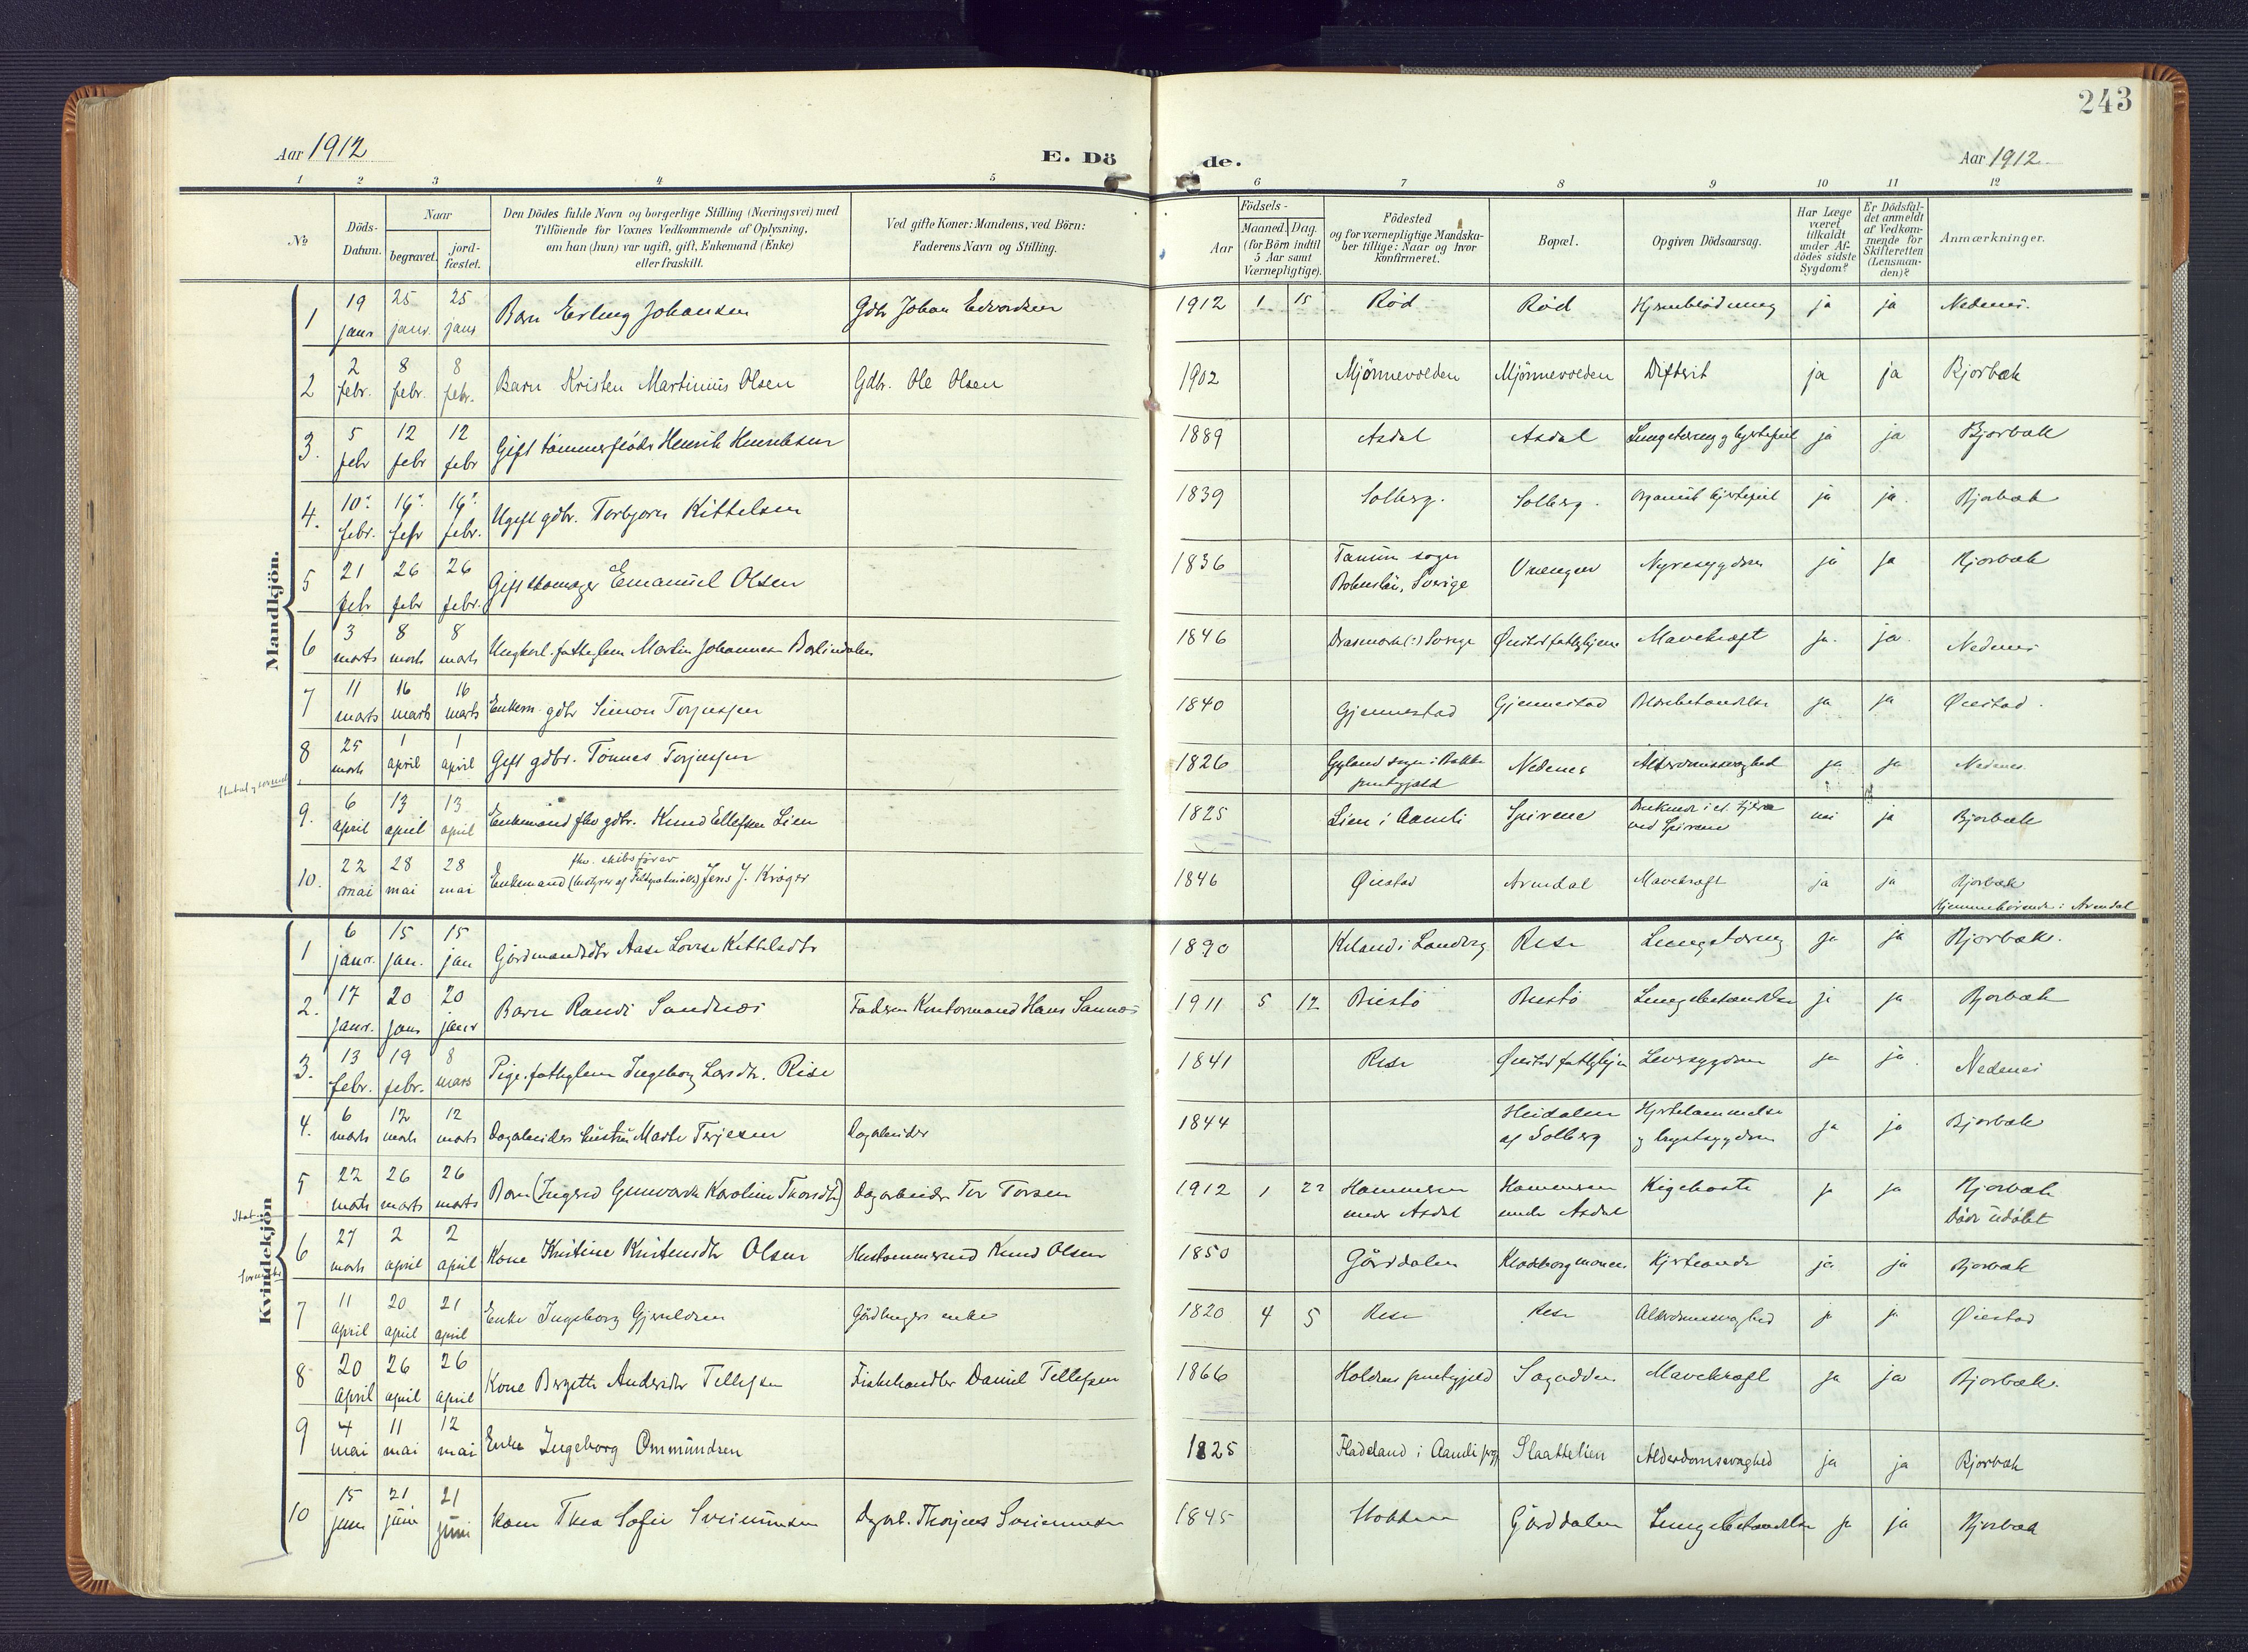 243
Aar 1912
E. Döde.
Aar 1912
1 2 3 4 5 6 7 8 9 10 11 12
No
Döds-Datum.
Naar
begravet.
jord-fæstet.
Den Dödes fulde Navn og borgerlige Stilling (Næringsvei) med
Tilföiende for Voxnes Vedkommende af Oplysning,
om han (hun) var ugift, gift, Enkemand (Enke)
eller fraskilt.
Ved gifte Koner: Mandens, ved Börn:
Faderens Navn og Stilling.
Födsels-
Aar
Maaned. Dag.
(for Börn indtil
5 Aar samt
Værnepligtige).
Födested
og for værnepligtige Mandska-
ber tillige: Naar og hvor
konfirmeret.
Bopæl.
Opgiven Dödsaarsag.
Har Læge
været
tilkaldt
under Af-
dödes sidste
Sygdom?
Er Dödsfal-
det anmeldt
af Vedkom-
mende for
Skifteretten
(Lensman-
den)?
Anmærkninger.
Mandkjön.
1 19 janr 25 janr. 25 janr Barn Erling Johansen Gdbr Johan Edvardsen 1912 1 15 Rød Rød Hjerneblødning ja ja Nedenes.
2 2 febr. 8 febr. 8 febr. Barn Kristen Martinius Olsen Gdbr. Ole Olsen 1902 Mjönnevolden Mjönnevolden Difterit ja ja Bjorbæk
3. 5 febr 12 febr 12 febr Gift tömmerfløder Henrik Henriksen 1889 Asdal Asdal Lungetæring og hjertefeil ja ja Bjorbæk
4. 10. febr. 16. febr 16. febr. Ugift gdbr. Torbjørn Kittelsen 1839 Solberg. Solberg. Organisk hjertefeil ja ja. Bjorbæk
5 21 febr 26 febr 26 febr. Gift skomager Emanuel Olsen 1836 Tanum sogn Bohuslän, Sverige Vrængen Nyresygdom ja ja Bjorbæk
6 3 marts 8 marts 8 marts Ungkarl. fattiglem Martin Johannes Berlindalen 1846 Sverige Øiestad fattighjem Mavekræft ja. ja. Nedenes
7 11 marts 16 marts 16 marts Enkem. gdbr Simon Terjesen 1840 Gjennestad Gjennestad Blærebetændelse ja ja Øiestad.
8 25 marts 1 april 1 april Gift gdbr. Tönnes Terjesen 1826 Gyland sogn i Bakke prestegjeld Nedenes Alderdomssvaghed ja ja Nedenes
9. 6 april 13 april 13 april Enkemand fhv gdbr. Knud Ellefsen Lien 1825 Lien i Aamli Spirene Druknede i et tjern ved Spirene nei ja Bjorbæk
10. 22 mai 28 mai 28 mai Enkemand fhv. skibsfører Jens J. Krøger 1846 Øiestad Arendal Mavekræft ja ja Bjorbæk Hjemmehörende i Arendal
Kvindekjön
1 6 janr. 15 jan. 15 jan Gårdmandsdtr Aase Lovise Kittelsdtr 1890 Landvig Rise Lungetæring ja ja Bjorbæk.
2. 17 janr. 20 janr 20 janr Barn Randi Sandnæs Faderen Kontormand Hans Sannæs 1911 5 12 Biestö Biestö Lungebetændelse ja ja Bjorbæk
3. 13 febr. 19 febr. 8 mars Pige. fattiglem Ingeborg Larsdtr. Rise 1841 Rise Øiestad fattighjem Leversygdom ja ja. Nedenes
4. 6 marts 12 marts 12 marts Dagarbeiders hustru Marte Terjesen Dagarbeider 1844 Heidalen af Solberg Hjertelammelse og brystsygdom ja ja Bjorbæk
5 22 marts 26 marts 26 marts Barn (Ingrid Gunvarda Karoline Thorsdtr) Dagarbeider Tor Torsen 1912 1 22 Hammeren under Asdal Hammeren under Asdal Kigehoste ja ja Bjorbæk Döde udöbt
6 27 marts 2 april 2 april Kone Kristine Kristensdtr Olsen Hustømmermand Knud Olsen 1850 Gårddalen Klodeborgmonen Hjerteonde ja ja Bjorbæk
7 11 april 20 april 21 april Enke Ingeborg Gjeruldsen Gårdbrugers enke 1820 4 5 Rise Rise Alderdomssvaghed ja ja Øiestad
8 20 april 26 april 26 april Kone Bergitte Andersdtr Tellefsen Fiskehandler Daniel Tellefsen 1866 Holdens prestegjeld Sagodden Mavekræft ja ja Bjorbæk.
9 4 mai 11 mai 12 mai Enke Ingeborg Ommundsen 1825 Fladeland i Aamli pgj. Slaattelien Alderdomssvaghed ja ja Bjorbæk
10 15 juni 21 juni 21 juni Kone Thea Sofie Sveinumsen Dagarb. Thorjus Sveinumsen 1845 Gårddalen Lungebetændelse ja ja Bjorbæk